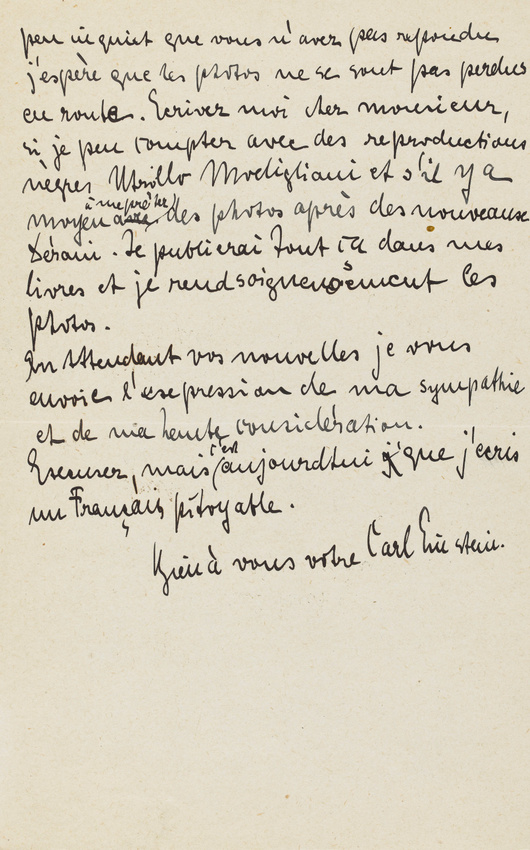 peu inquiet que vous n'avez pas repondu
j'espère que les photos ne se sont pas perdus
en route. Ecrivez moi cher monsieur,
si je peu compter avec des reproductions
nègres Utrillo Modigliani et s'il y a
à me prêter
moyen avec des photos après des nouveaux
Dérain. Je publierai tout ça dans mes
livres et je rend soigneusement les
photos.
En Attendant vos nouvelles je vous
envoie l'expression de ma sympathie
et de ma haute considération.
c'est
Excusez, mais aujourdhui que j'ecris
un Français pitoyable.
bien à vous votre Carl Einstein.